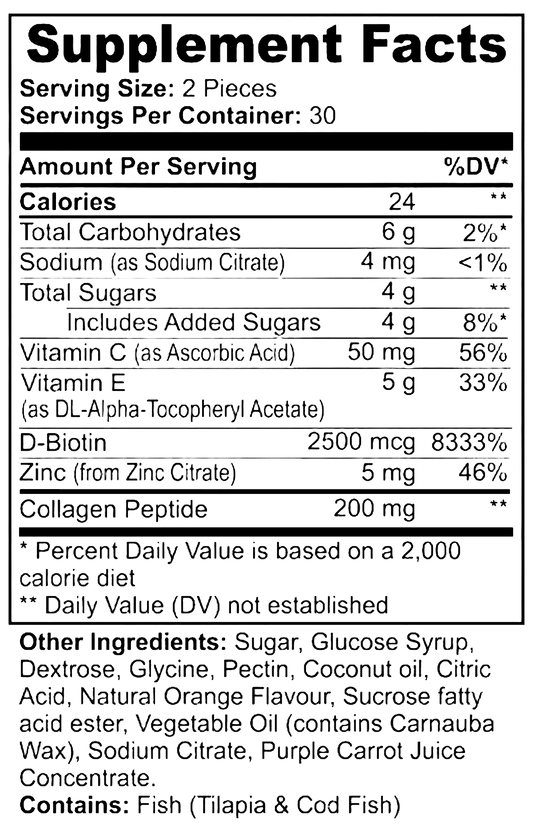 Supplement Facts
Serving Size: 2 Pieces
Servings Per Container: 30
Amount Per Serving %DV*
Calories 24 **
Total Carbohydrates 6 g 2%*
Sodium (as Sodium Citrate) 4 mg <1%
Total Sugars 4 g **
Includes Added Sugars 4 g 8%*
Vitamin C (as Ascorbic Acid) 50 mg 56%
Vitamin E 5 g 33%
(as DL-Alpha-Tocopheryl Acetate)
D-Biotin 2500 mcg 8333%
Zinc (from Zinc Citrate) 5 mg 46%
Collagen Peptide 200 mg **
* Percent Daily Value is based on a 2,000
calorie diet
** Daily Value (DV) not established
Other Ingredients: Sugar, Glucose Syrup,
Dextrose, Glycine, Pectin, Coconut oil, Citric
Acid, Natural Orange Flavour, Sucrose fatty
acid ester, Vegetable Oil (contains Carnauba
Wax), Sodium Citrate, Purple Carrot Juice
Concentrate.
Contains: Fish (Tilapia & Cod Fish)